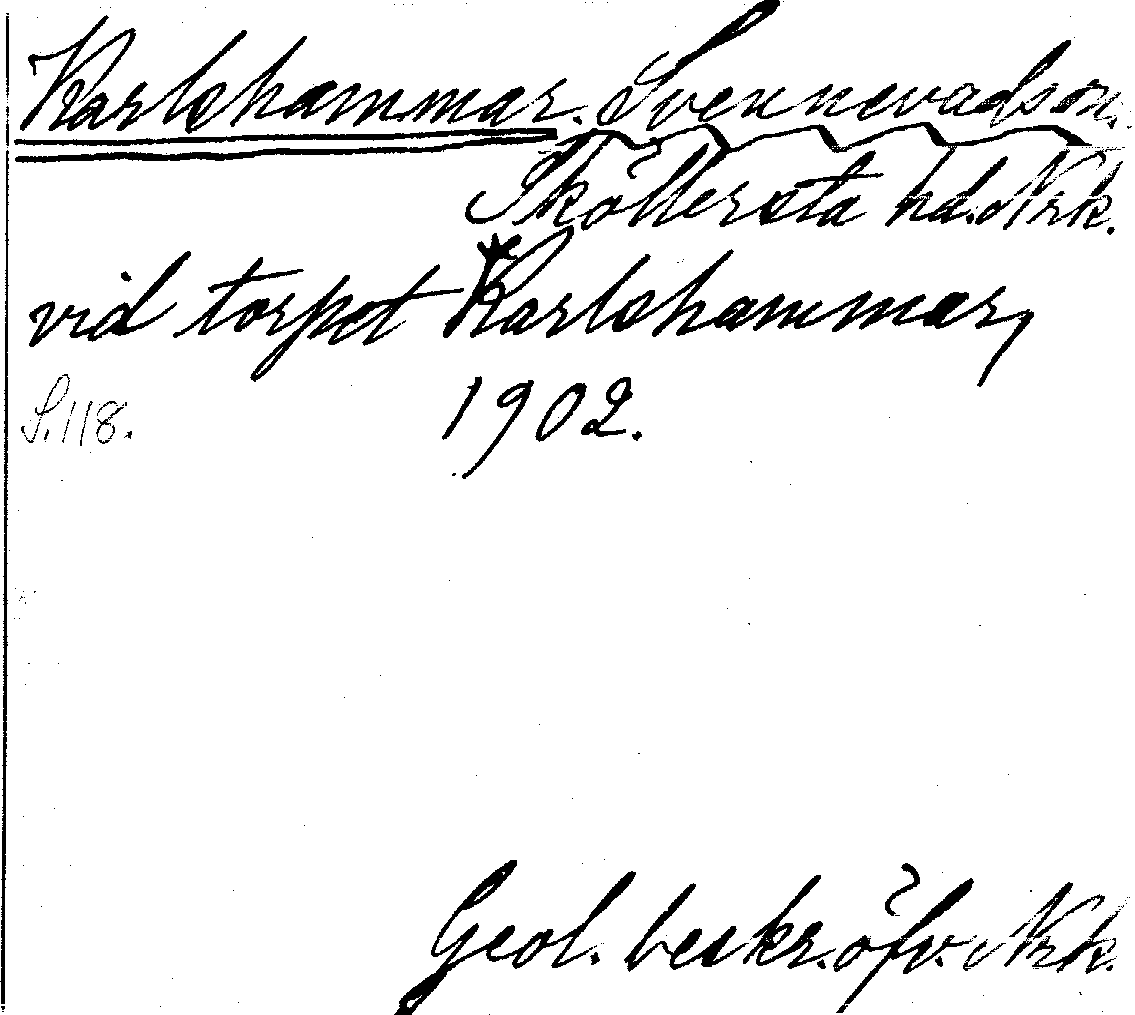 Karlshammar. Svennevadson.
Sköllersta hd. Nrk.
vid torpet Karlshammar,
1902.
S. 118.
Geol. beskr. öfv. Nrk.